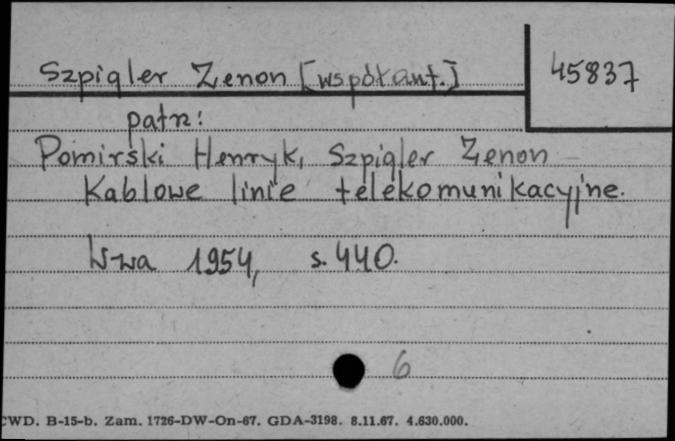 Szpigler Zenon [współaut.]
45837
patrz:
Pomirski Henryk, Szpigler Zenon
Kablowe linie telekomunikacyjne.
W-wa 1954, s. 440.
6
CWD. B-15-b. Zam. 1726-DW-On-67. GDA-3198. 8.11.67. 4.630.000.